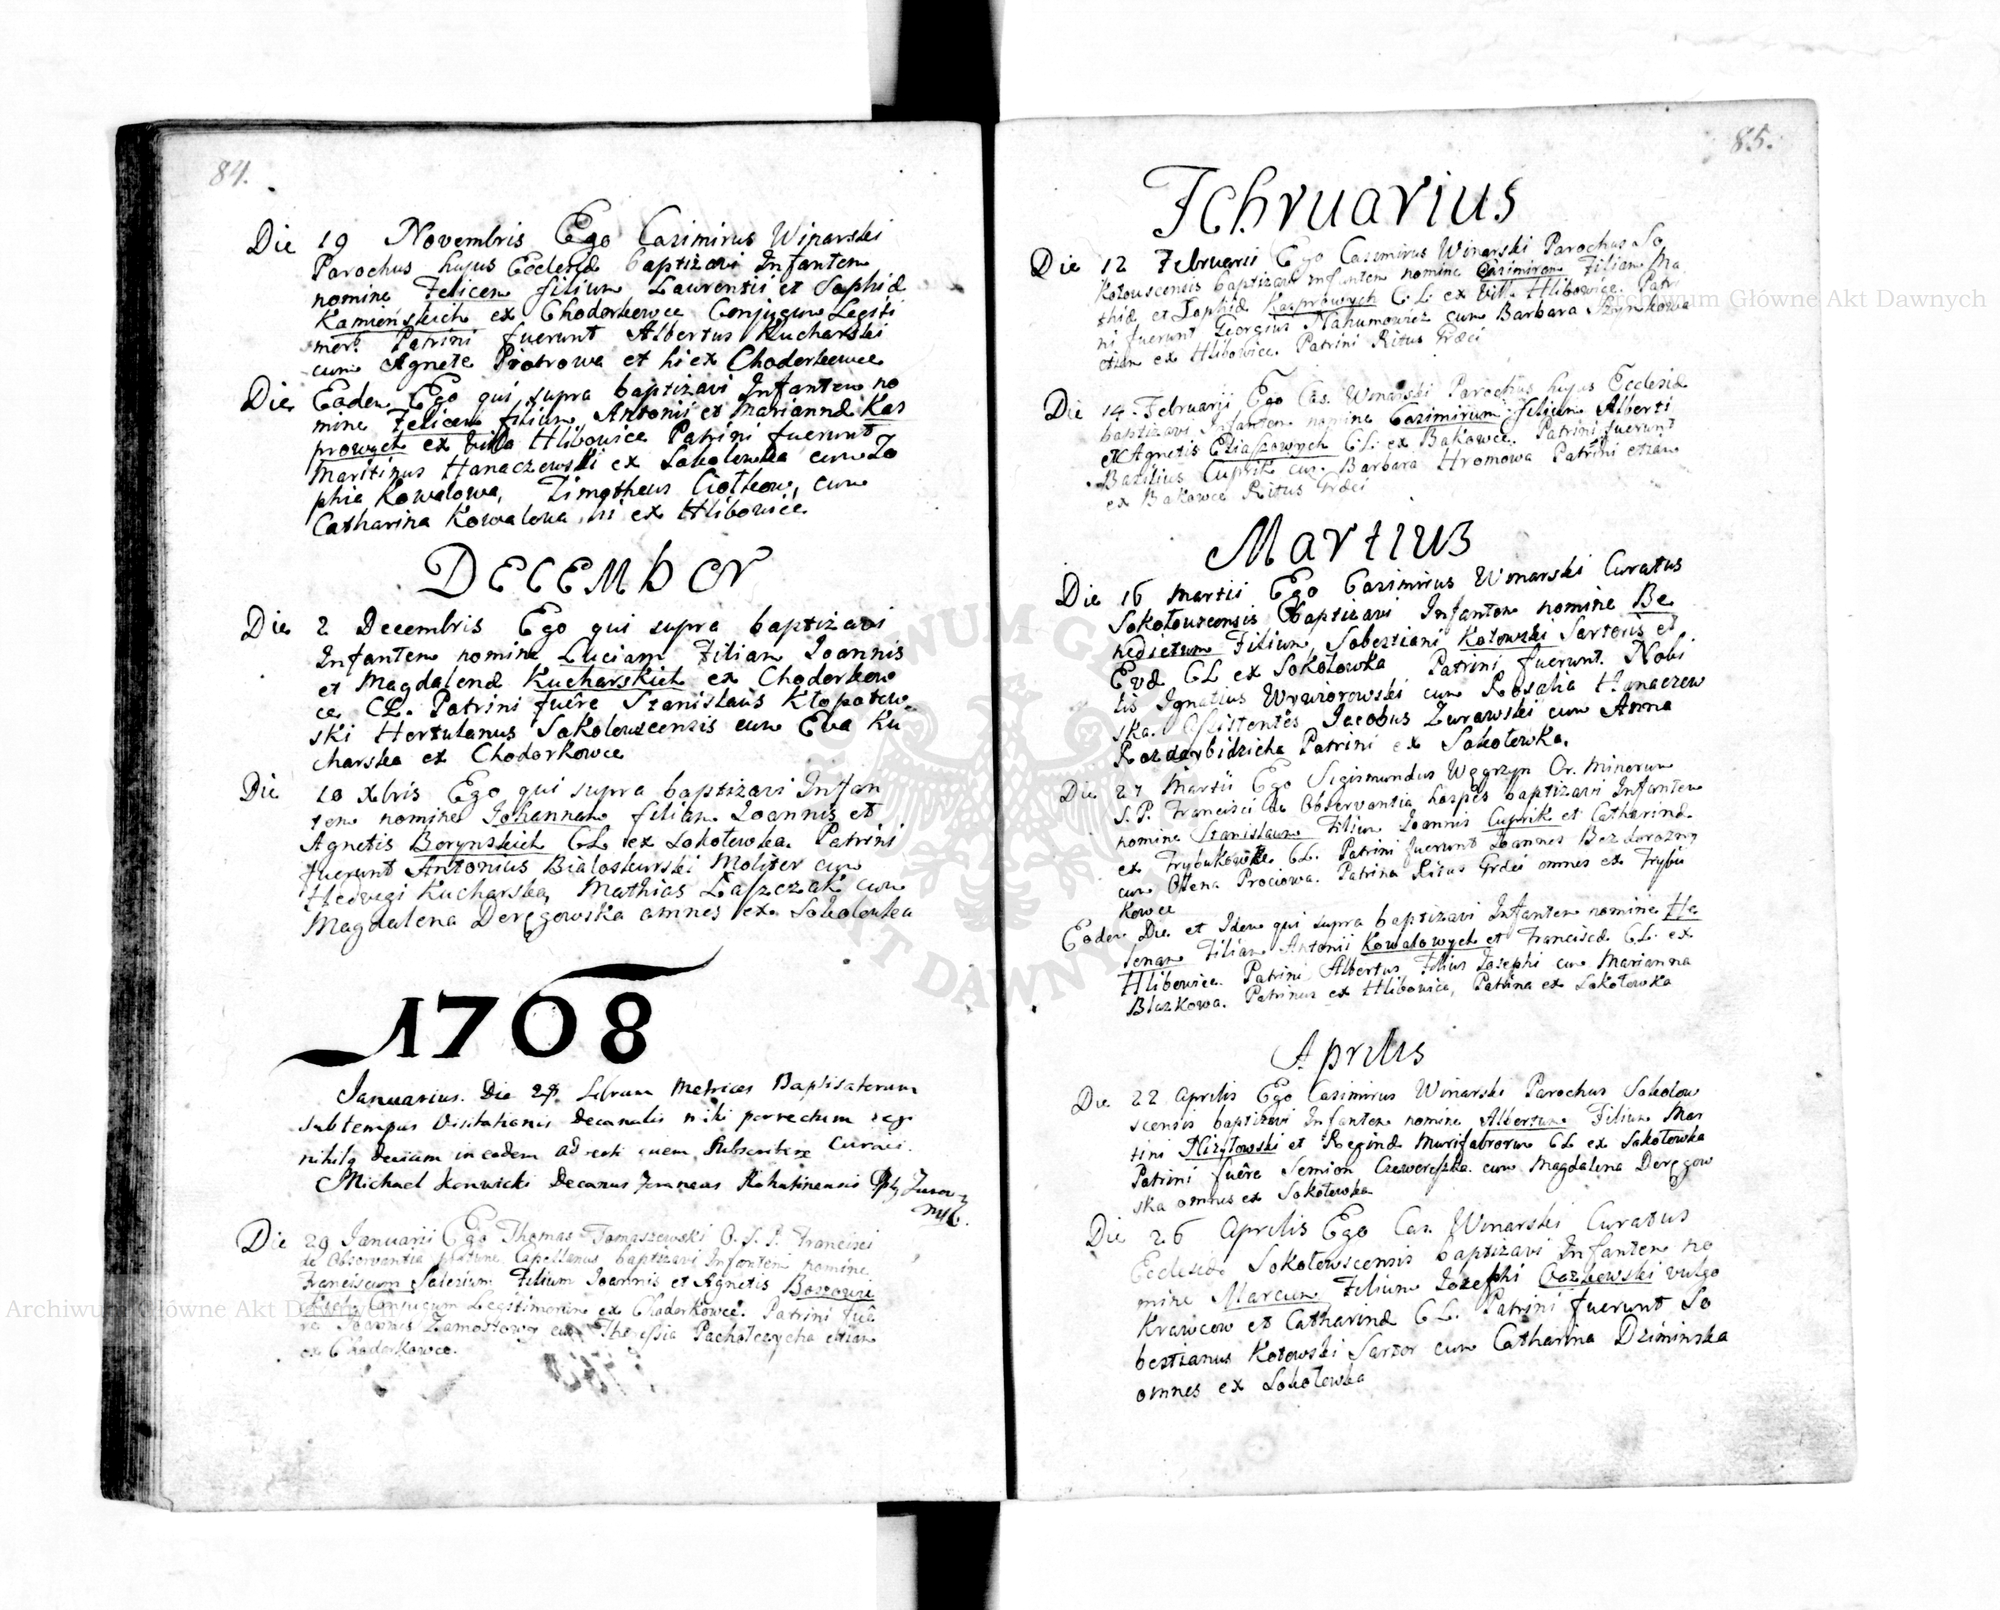 84.
Die 19 Novembris Ego Casimirus Winarski
Parochus hujus Ecclesiæ baptizavi Infantem
nomine Felicem filium Laurentii et Sophiæ
Kamienskich ex Chodorkowce Conjugum Legiti
mor. Patrini fuerunt Albertus Kucharski
cum Agnete Piotrowa et hi ex Chodorkowce
Die Eadem Ego qui supra baptizavi Infantem no
mine Felicem filium Antonii et Mariannæ Kas
prowych ex villa Hlibowice Patrini fuerunt
Martinus Hanaczewski ex Sokolowka cum Zo
phia Kowalowa, Timotheus Ciolkow, cum
Catharina Kowalowa hi ex Hlibowice
DECEMber
Die 2 Decembris Ego qui supra baptizavi
Infantem nomine Luciam Filiam Joannis
et Magdalenæ Kucharskich ex Chodorkow
ce CL. Patrini fuêre Stanislaus Klopotow
ski Hortulanus Sokolouscensis cum Eva Ku
charska ex Chodorkowce
Die 10 Xbris Ego qui supra baptizavi Infan
tem nomine Johannam filiam Joannis et
Agnetis Borynskich CL ex Sokolowka. Patrini
fuerunt Antonius Bialoskurski Molitor cum
Hedvigi Kucharska, Mathias Laszczak cum
Magdalena Deręgowska omnes ex Sokolowka
1708
Januarius. Die 29 Librum Metrices Baptisatorum
sub tempus Visitationis Decanalis mihi porrectum
Michael Decanus Rohatinensis
Die 29 Januarii Ego Thomas Tomaszewski O. S. P. Francisci
de Observantia Capellanus baptizavi Infantem nomine
Franciscum Salesium Filium Joannis et Agnetis
Conjugum Legitimorum ex Chodorkowce. Patrini fuê
re Joannes Zamostowy cum Theressia Pacholczycha etiam
ex Chodorkowce.
85.
Febrvarivs
Die 12 Februarii Ego Casimirus Winarski Parochus So
kolouscensis baptizavi Infantem nomine Casimiram Filiam Ma
thiæ et Sophiæ Kasprowych C. L. ex Vill. Hlibowice. Patri
ni fuerunt Georgius Nahumowicz cum Barbara Szynkowa
etiam ex Hlibowice. Patrini Ritus Græci
Die 14 Februarii Ego Cas. Winarski Parochus hujus Ecclesiæ
baptizavi Infantem nomine Casimirum filium Alberti
et Agnetis Eliaszowych CL. ex Bakowce. Patrini fuerunt
Basilius Cuprik cum Barbara Hromowa Patrini etiam
ex Bakowce Ritus Græci
Martius
Die 16 Martii Ego Casimirus Winarski Curatus
Sokolouscensis baptizavi Infantem nomine Be
nedictum Filium Sebestiani Kotowski Sartoris et
Evæ CL ex Sokolowka Patrini fuerunt. Nobi
lis Ignatius Wywiorowski cum Rosalia Hanaczew
ska. Assistentes Jacobus Zurawski cum Anna
Rozdarbidzicha Patrini ex Sokolowka.
Die 27 Martii Ego Sigismundus Węgrzyn Or. Minorum
S. P. Francisci de Observantia hospes baptizavi Infantem
nomine Stanislaum Filium Joannis Cuprik et Catharinæ
ex Trybukowce CL. Patrini fuerunt Joannes Bezdorozny
cum Olena Prociowa. Patrina Ritus Græci omnes ex Trybu
kowce
Eadem Die et Idem qui supra baptizavi Infantem nomine He
lenam Filiam Antonii Kowalowych et Franciscæ CL. ex
Hlibowice. Patrini Albertus Filius Josephi cum Marianna
Bluzkowa. Patrinus ex Hlibowice, Patrina ex Sokolowka
Aprilis
Die 22 Aprilis Ego Casimirus Winarski Parochus Sokolow
scensis baptizavi Infantem nomine Albertum Filium Mar
tini Nizytowski et Reginæ Murifabrorum CL ex Sokolowka
Patrini fuêre Semion Czwereszka cum Magdalena Deręgow
ska omnes ex Sokolowka
Die 26 Aprilis Ego Cas. Winarski Curatus
Ecclesiæ Sokolowscensis baptizavi Infantem no
mine Marcum Filium Josephi vulgo
Krawcow et Catharinæ CL. Patrini fuerunt Se
bestianus Kotowski Sartor cum Catharina Dziminska
omnes ex Sokolowka
Archiwum Główne Akt Dawnych